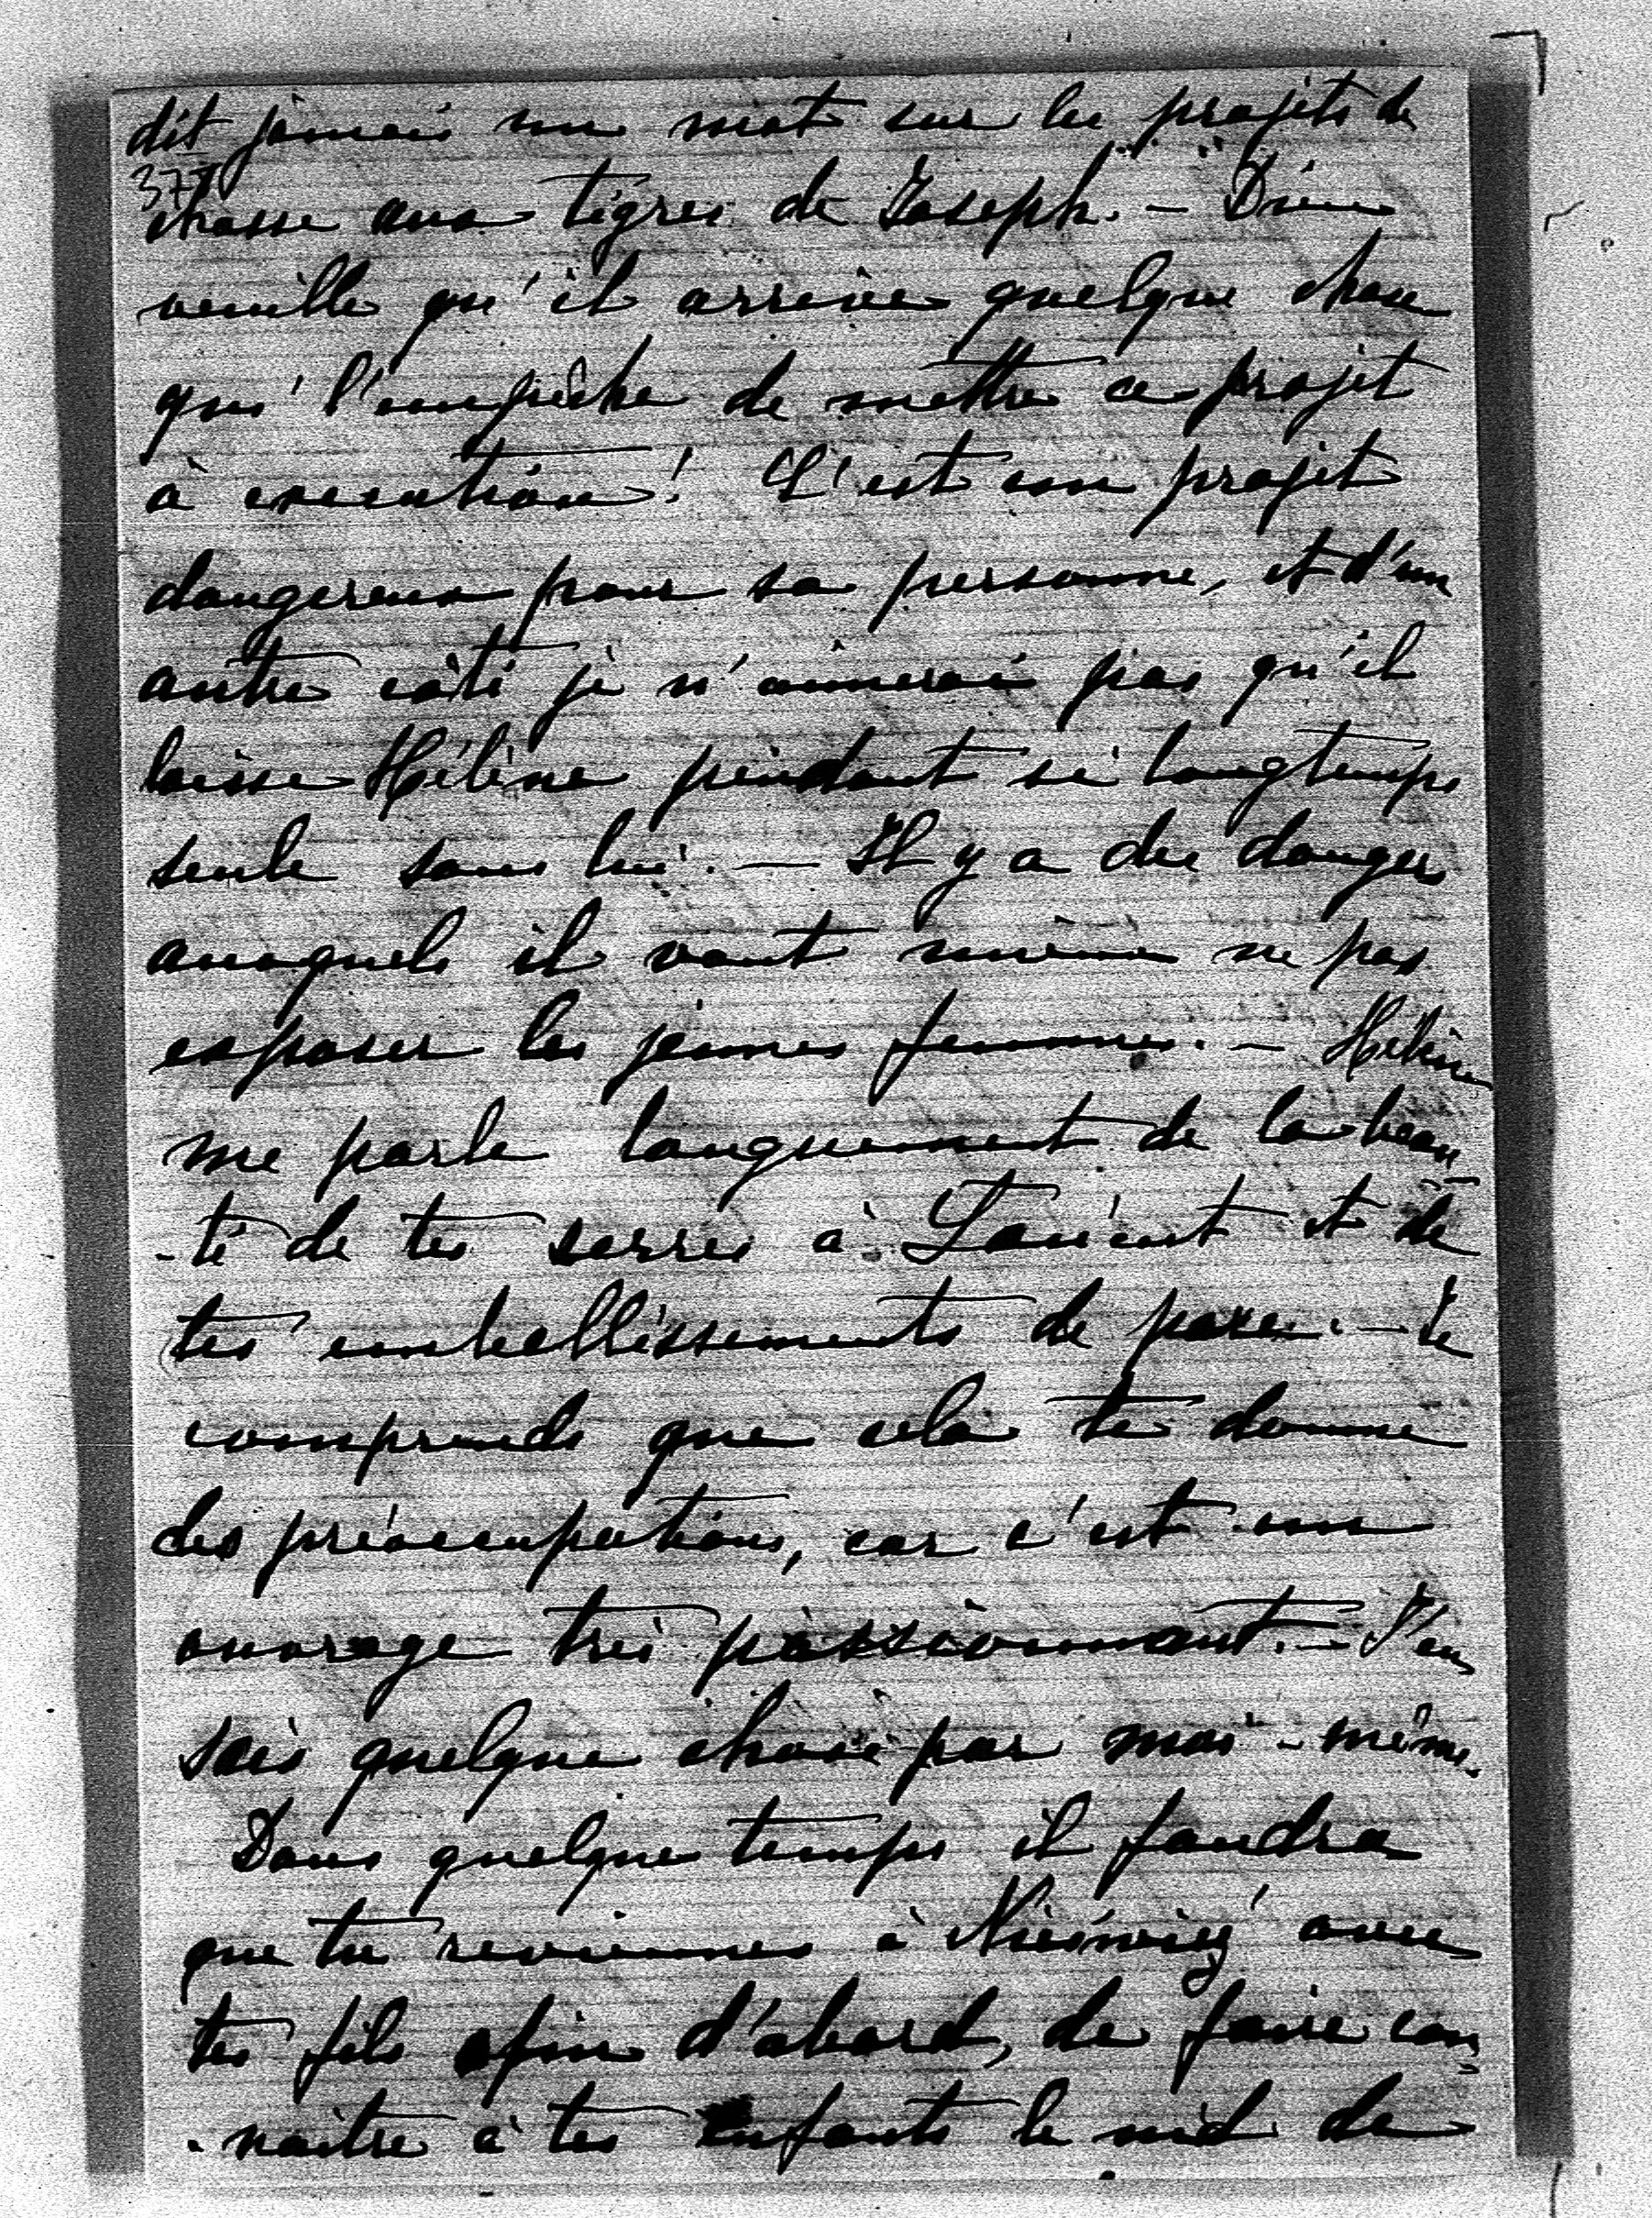 dit jamais un mot sur les projets de
377
chasse aux tigres de Joseph. – Dieu
veuille qu'il arrive quelque chose
qui l'empêche de mettre ce projet
à execution! C'est un projet
dangereux pour sa personne, et d'un
autre côté je n'aimerai pas qu'il
laisse Hélène pendant si longtemps
seule sans lui. — Il y a des dangers
auxquels il vaut mieux ne pas
exposer les jeunes femmes. – Hélène
me parle longuement de la beau
-té de tes serres à Łańcut et de
tes embellissements de parc. – Je
comprends que cela te donne
des préoccupations, car c'est un
ouvrage très passionnant. – J'en
sais quelque chose par moi-même.
Dans quelque temps il faudra
que tu reviennes à Nieśwież avec
tes fils afin d'abord, de faire con
-naitre à tes enfants le nid de